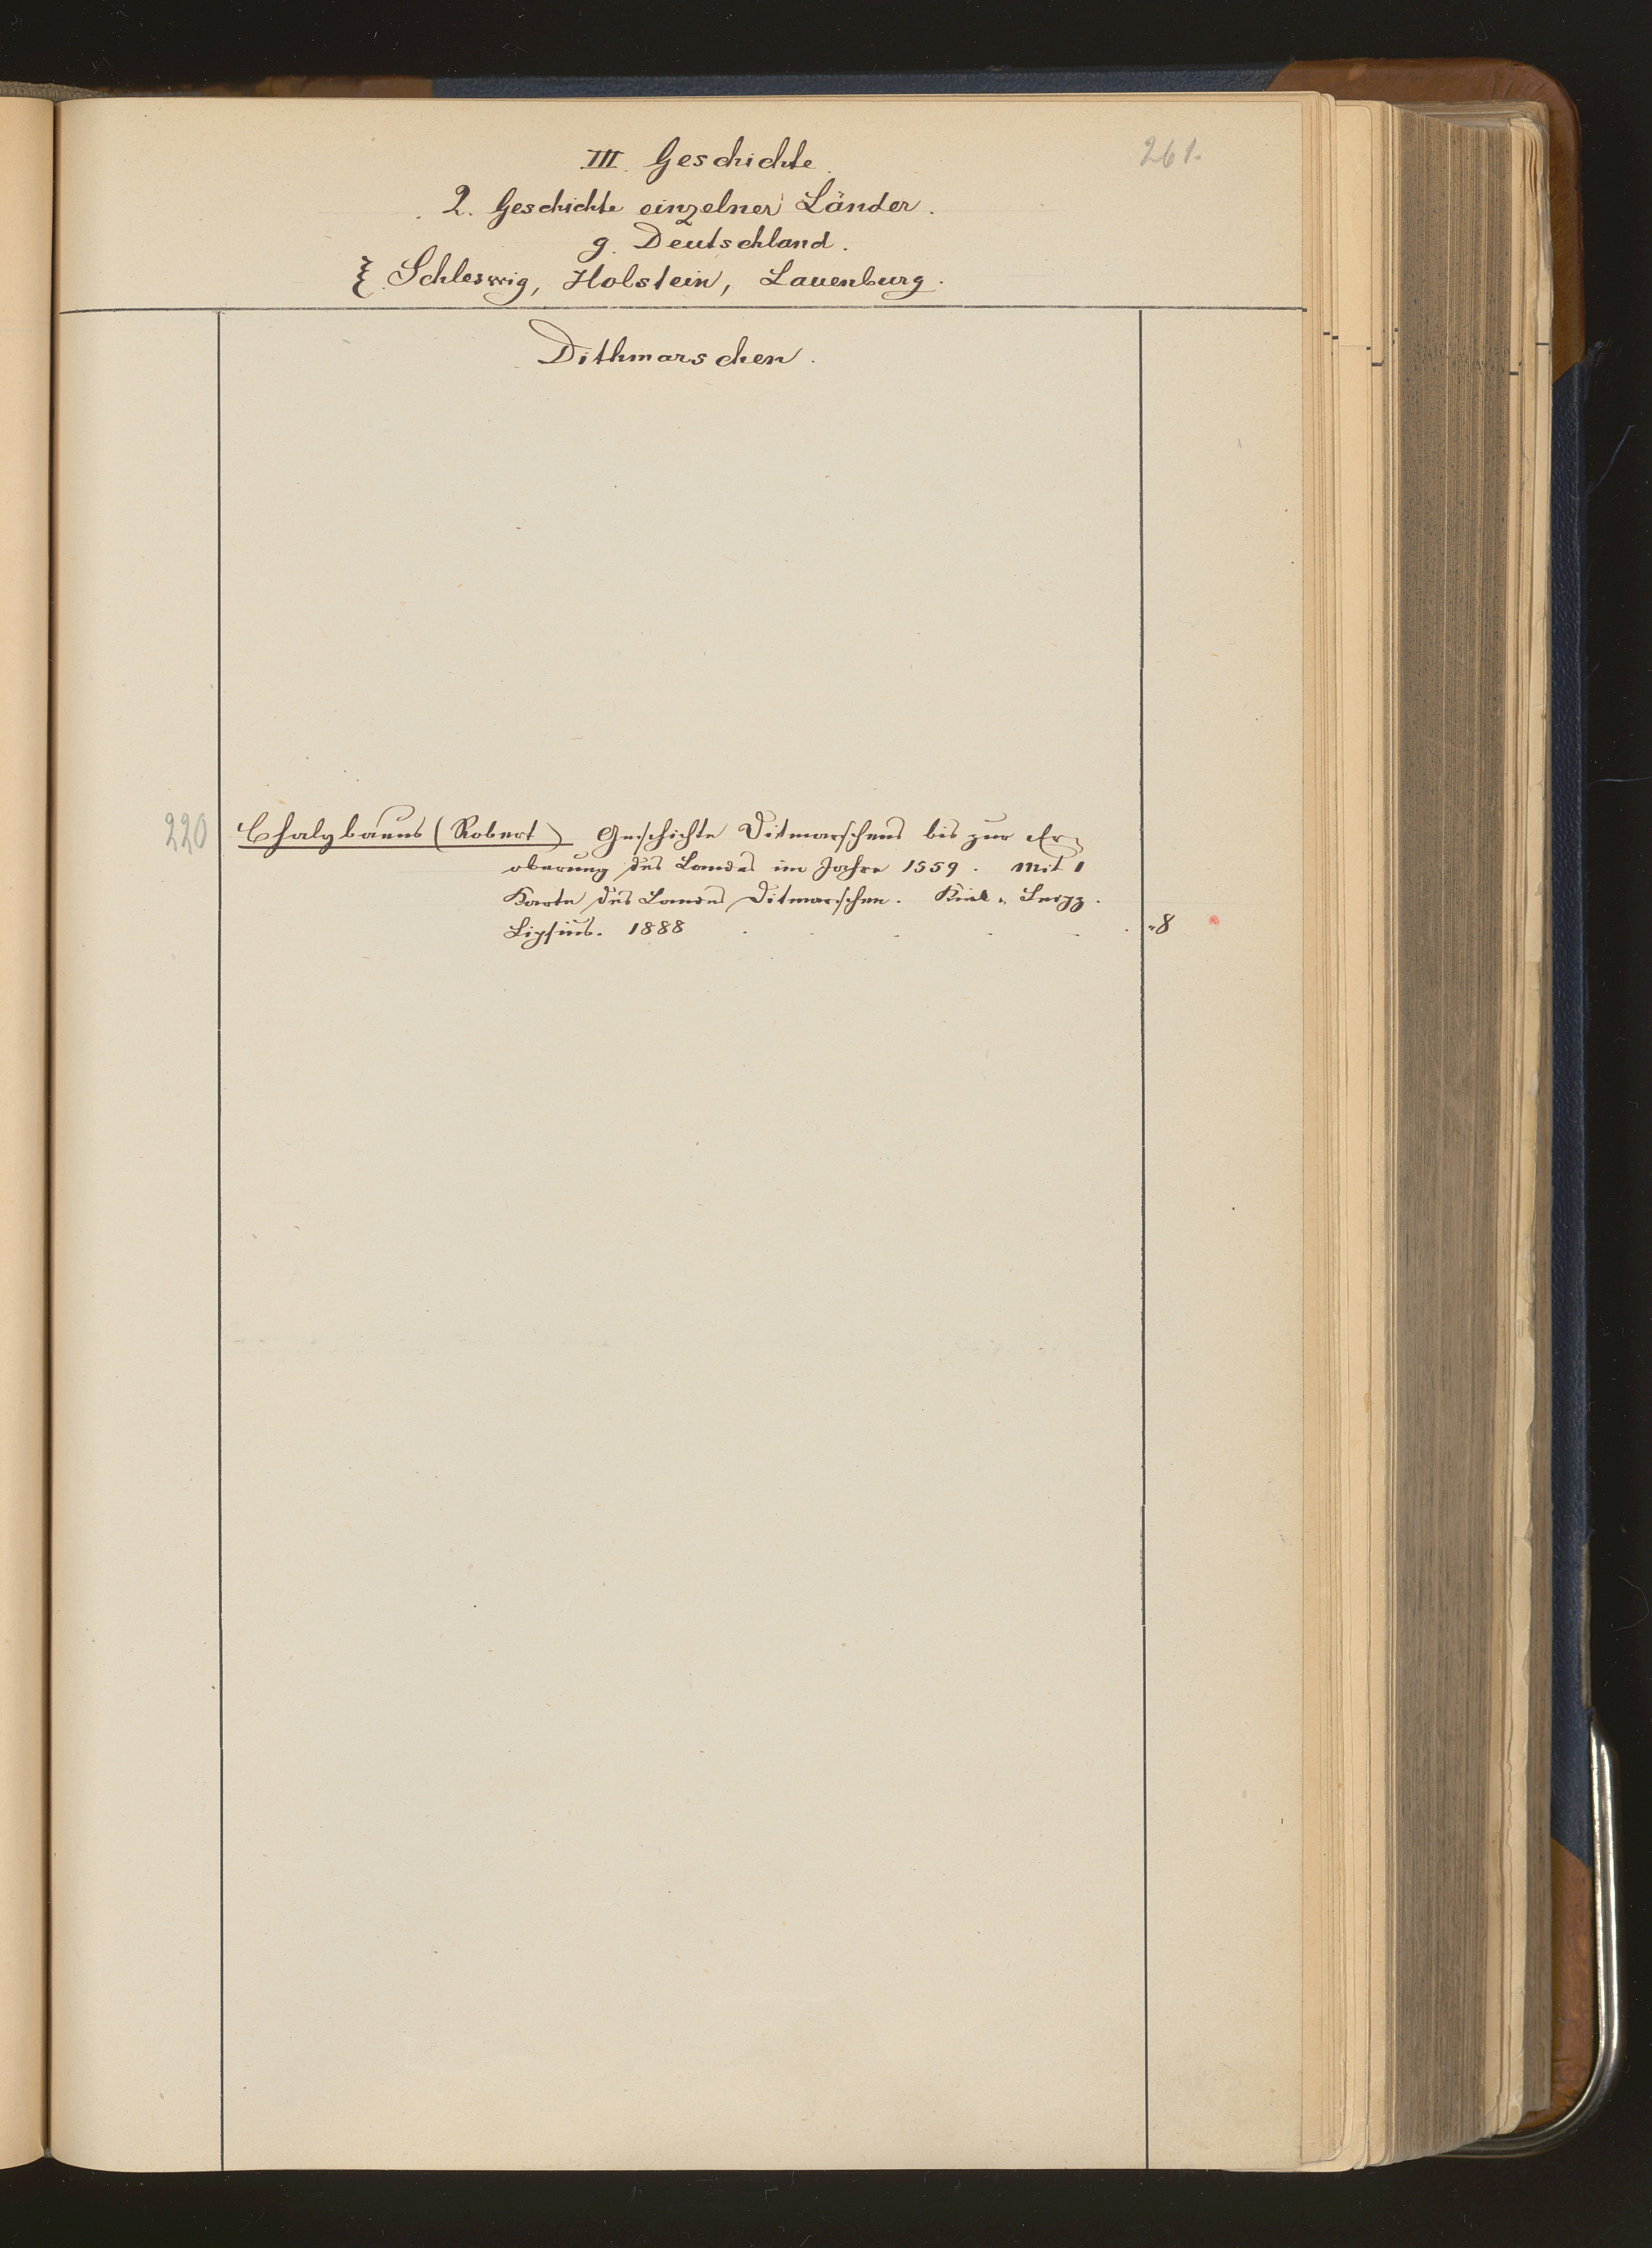 261.
III. Geschichte.
2. Geschichte einzelner Länder.
g. Deutschland.
ξ. Schleswig, Holstein, Lauenburg.
Dithmarschen.
220 Chalybaeus (Robert) Geschichte Ditmarschens bis zur Er-
oberung des Landes im Jahre 1559. Mit 1
Karte des Landes Ditmarschen. Kiel u. Leipz.
Lipsius. 1888 . . . . . . 8